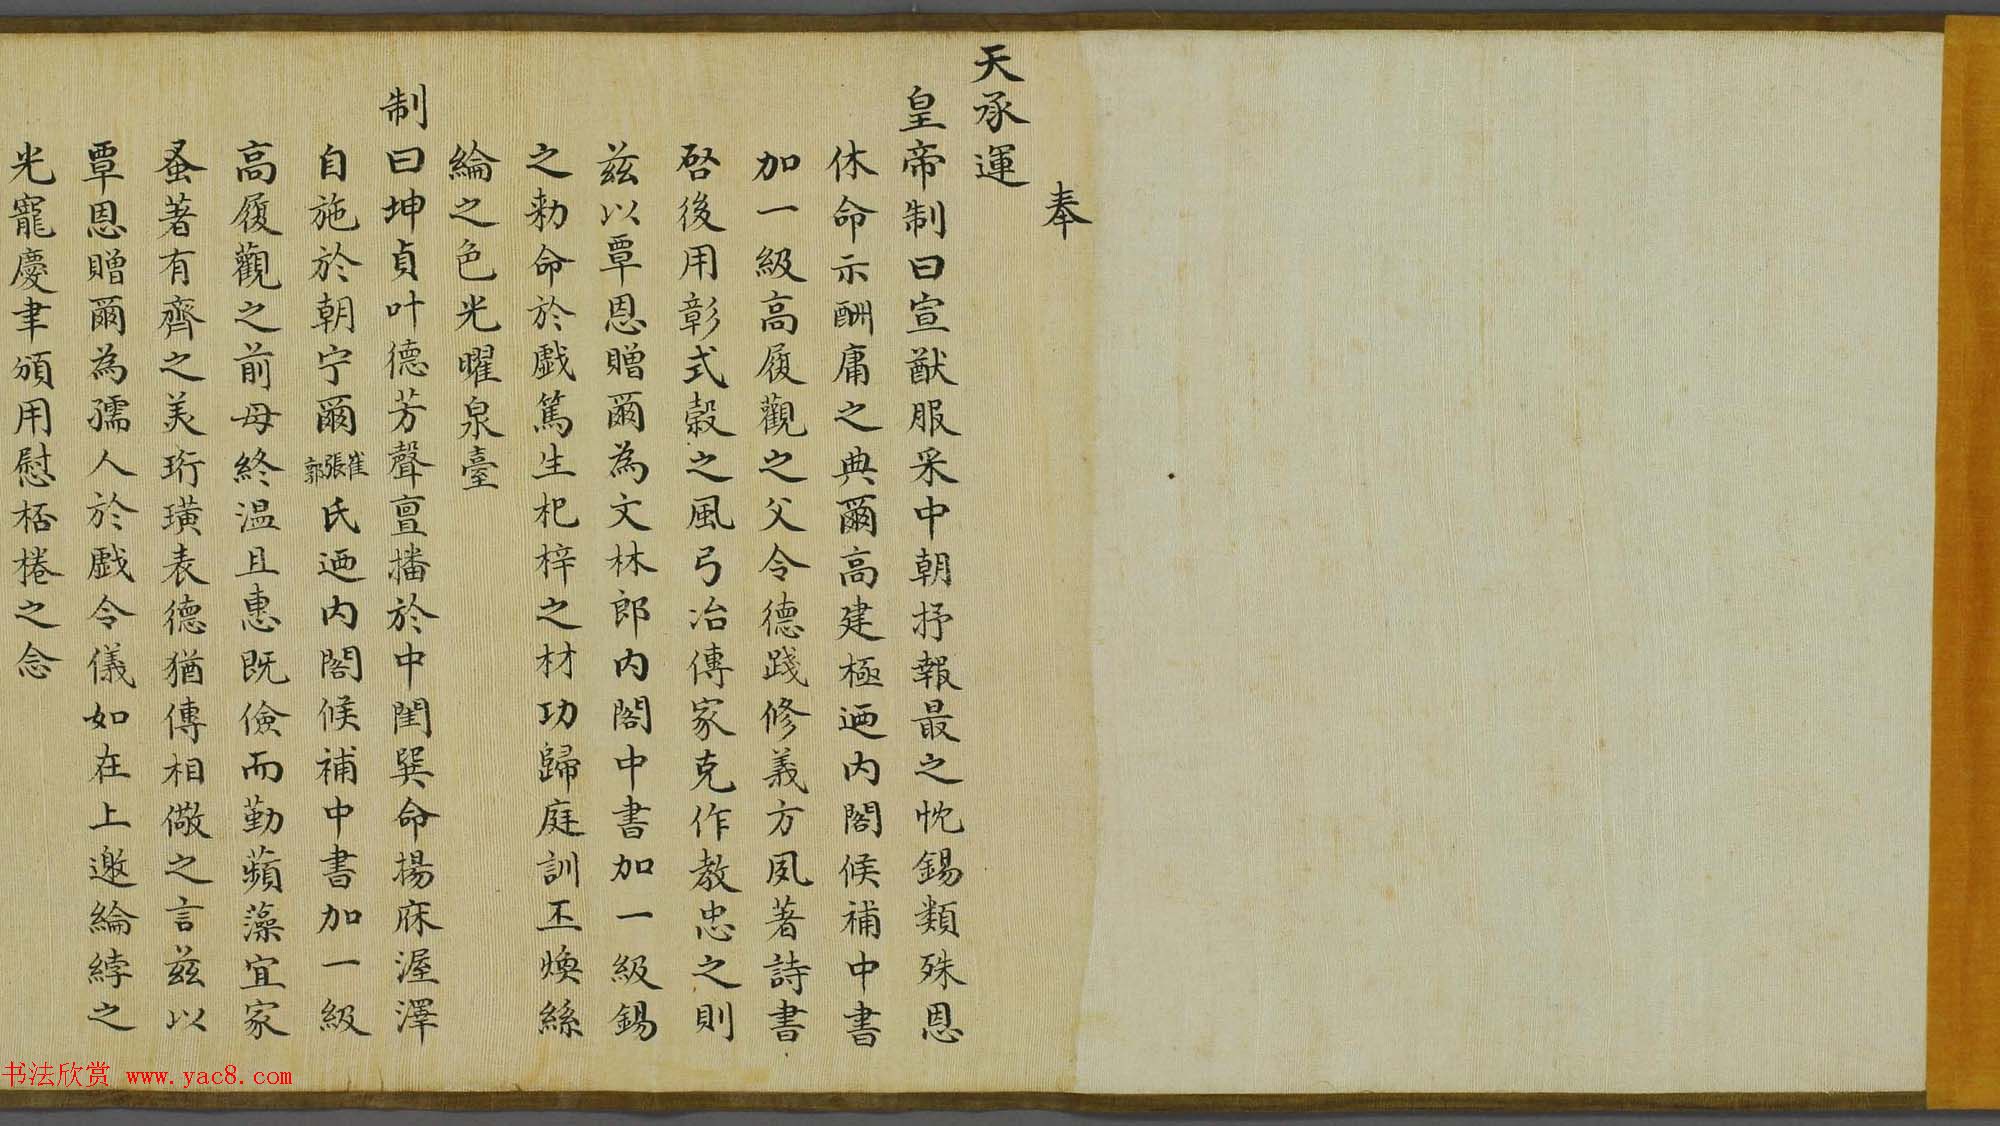 奉
天承運
皇帝制曰宣猷服采中朝抒報最之忱錫類殊恩
休命示酬庸之典爾高建極迺內閣候補中書
加一級高履觀之父令德踐修義方夙著詩書
啓後用彰式穀之風弓冶傳家克作教忠之則
茲以覃恩贈爾為文林郎內閣中書加一級錫
之勅命於戲篤生杞梓之材功歸庭訓丕煥絲
綸之色光曜泉臺
制曰坤貞叶德芳聲亶播於中閨巽命揚庥渥澤
自施於朝宁爾崔張郭氏迺內閣候補中書加一級
高履觀之前母終温且惠既儉而勤蘋藻宜家
蚤著有齊之美珩璜表德猶傳相儆之言茲以
覃恩贈爾為孺人於戲令儀如在上邀綸綍之
光寵慶聿頒用慰桮棬之念
书法欣赏 www.yac8.com